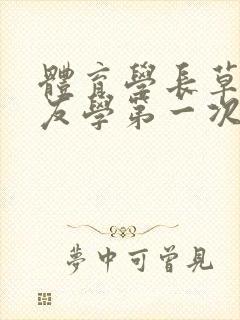 體育學長草
友學第一次
夢中可曾見